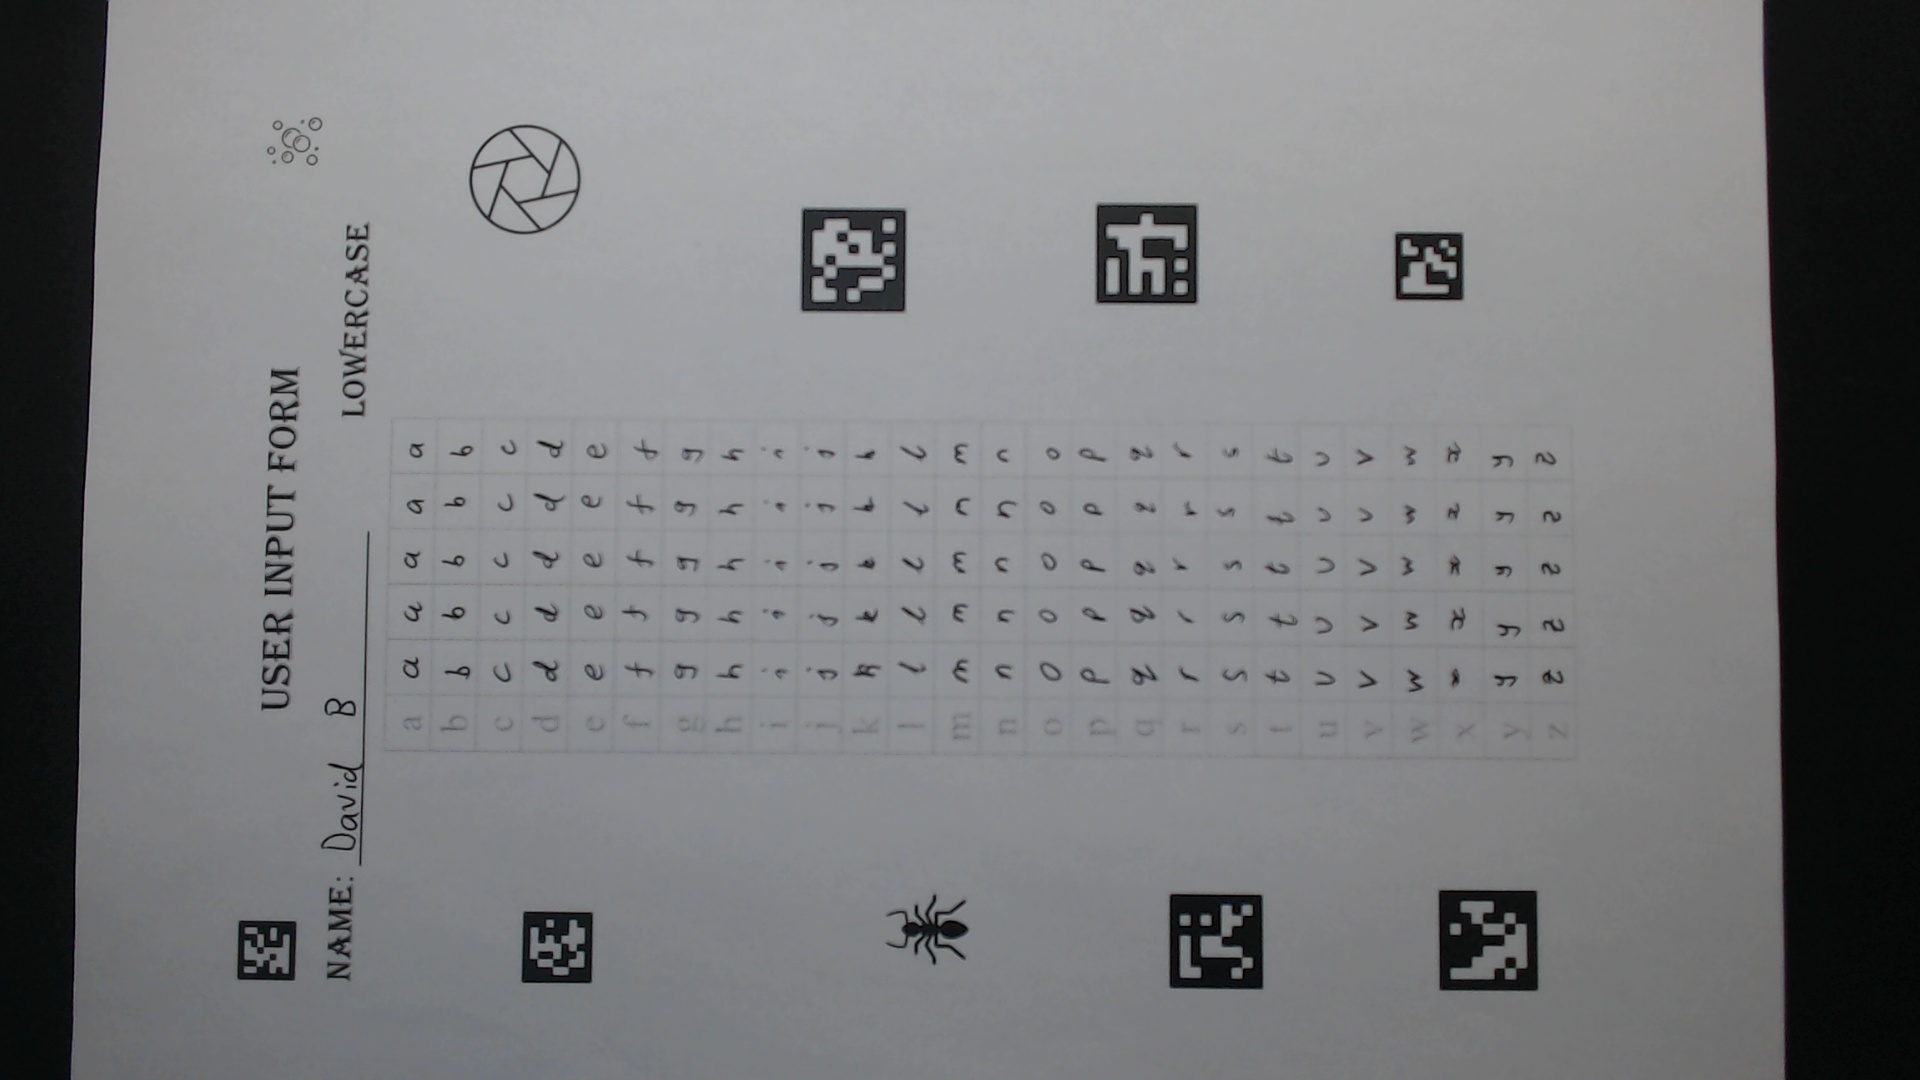 USER INPUT FORM
NAME: David B LOWERCASE
a a a a a a
b b b b b b
c c c c c c
d d d d d d
e e e e e e
f f f f f f
g g g g g g
h h h h h h
i i i i i i
j j j j j j
k k k k k k
l l l l l l
m m m m n m
n n n n n n
o o o o o o
p p p p p p
q q q q q q
r r r r r r
s s s s s s
t t t t t t
u u u u u u
v v v v v v
w w w w w w
x x x x x x
y y y y y y
z z z z z z